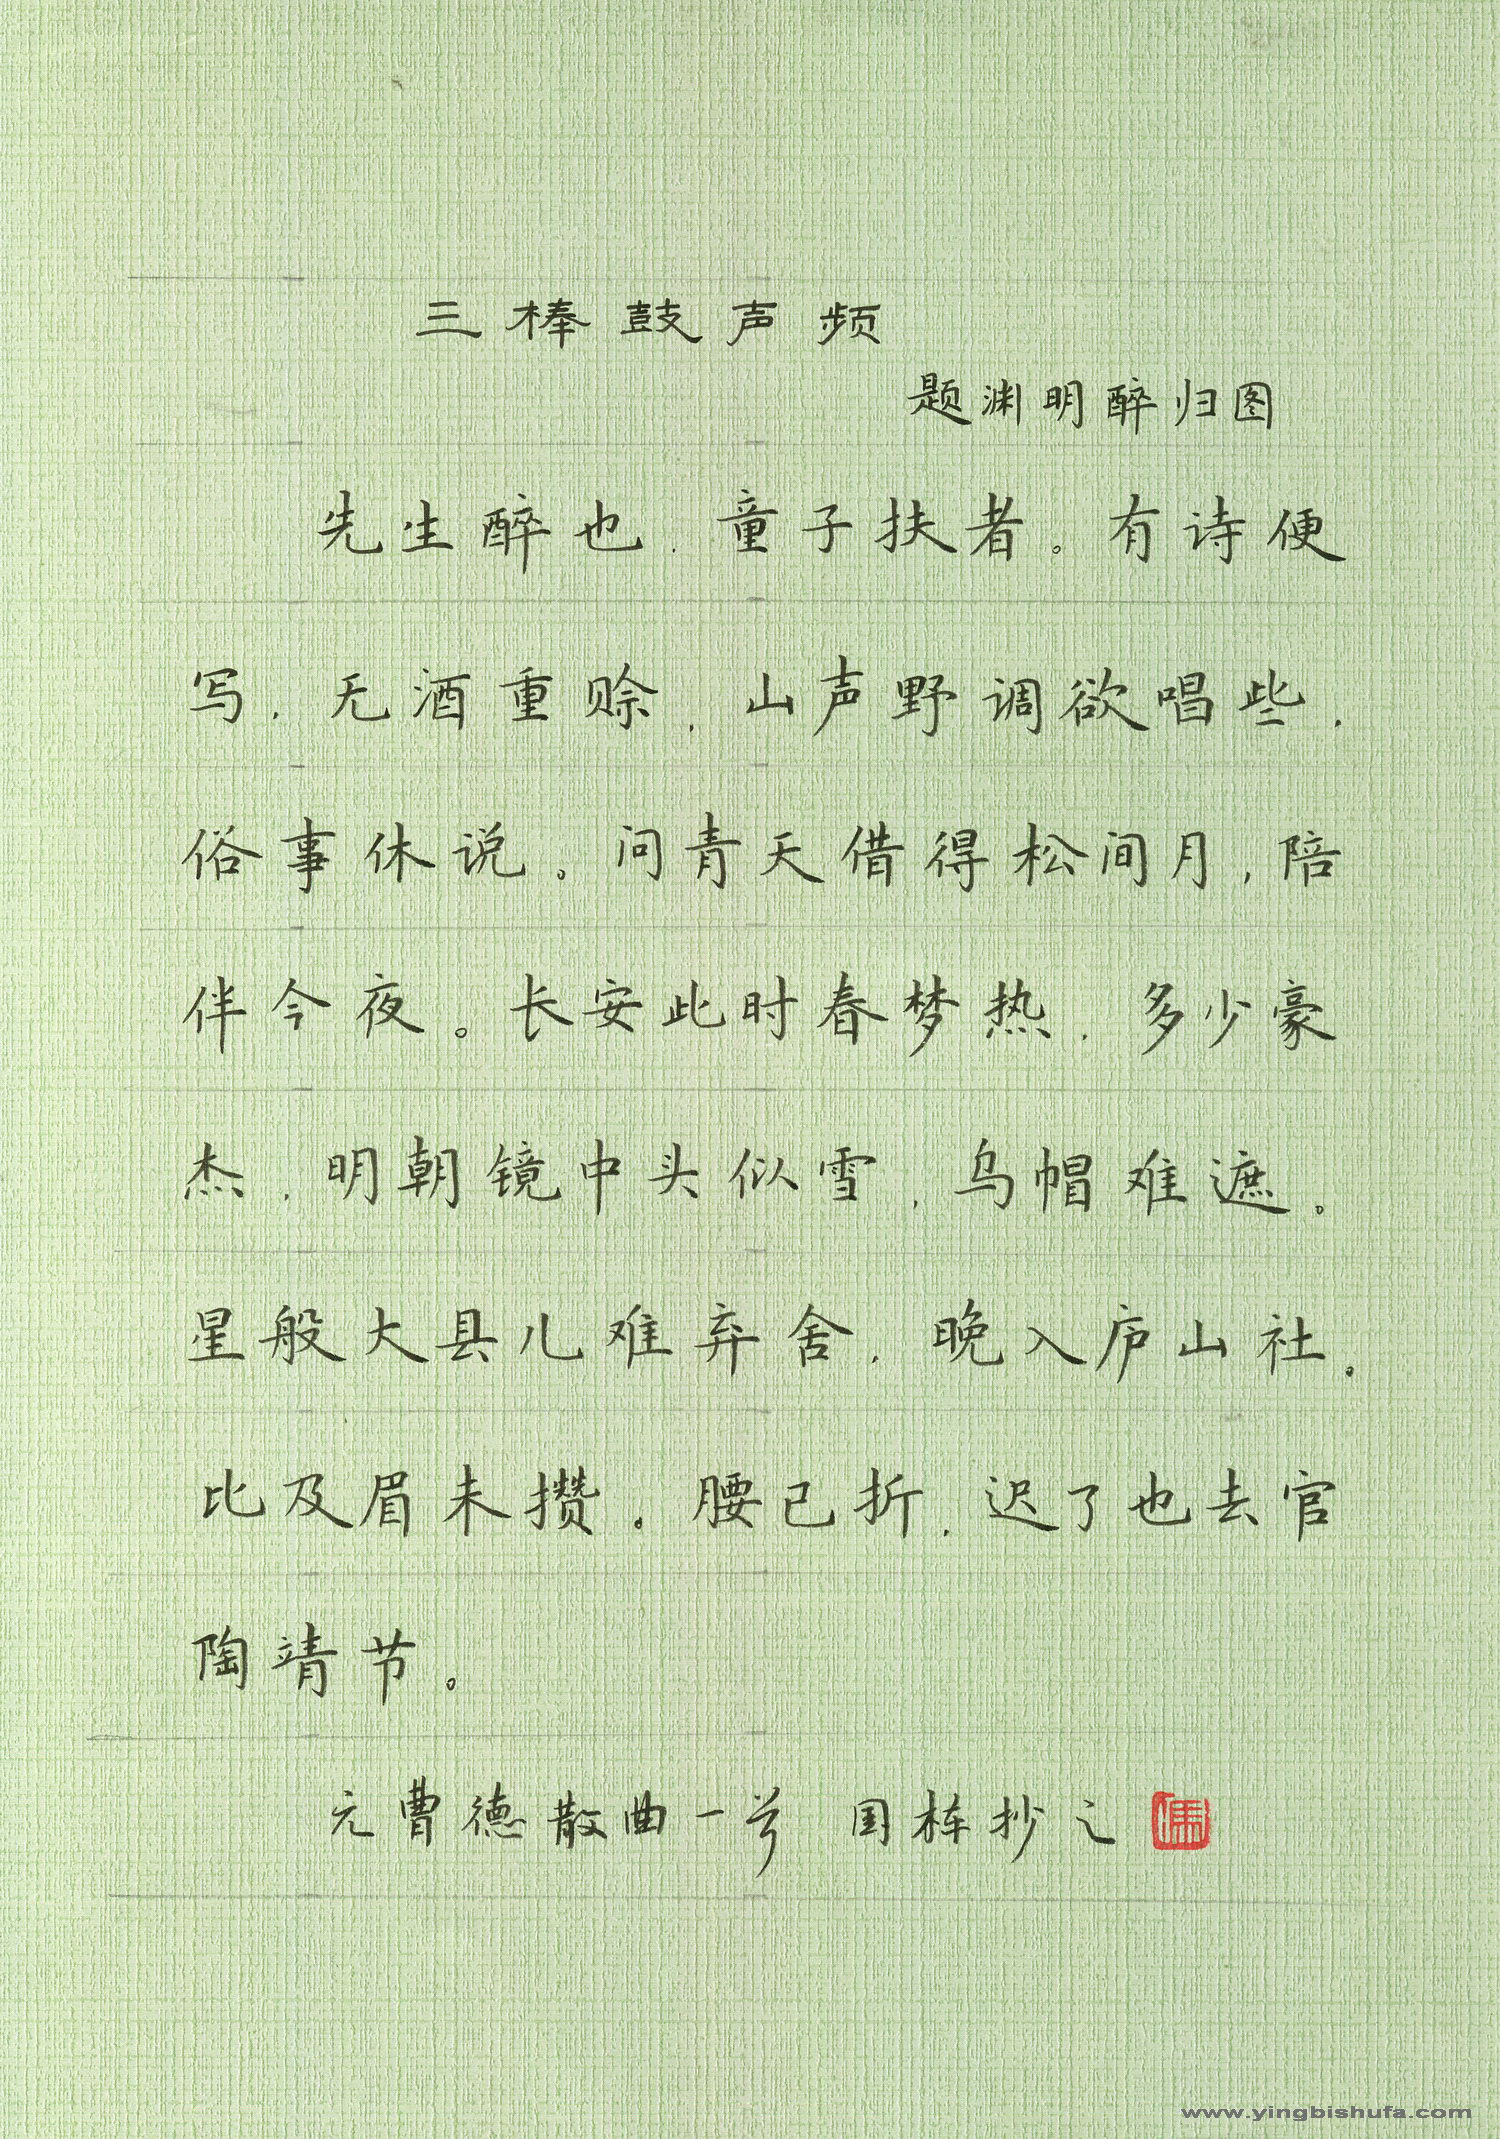 三棒鼓声频
题渊明醉归图
先生醉也，童子扶者。有诗便
写，无酒重赊，山声野调欲唱些，
俗事休说。问青天借得松间月，陪
伴今夜。长安此时春梦热，多少豪
杰，明朝镜中头似雪，乌帽难遮。
星般大县儿难弃舍，晚入庐山社。
比及眉未攒。腰已折，迟了也去官
陶靖节。
元曹德散曲一首 国栋抄之
www.yingbishufa.com